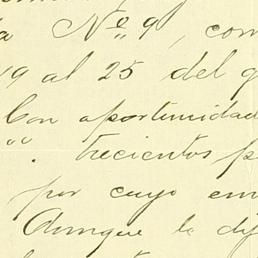 a Nº 9, com
19 al 25 del q
Con oportunidad
"". trecientos p
por cuyo en
Aunque la dif